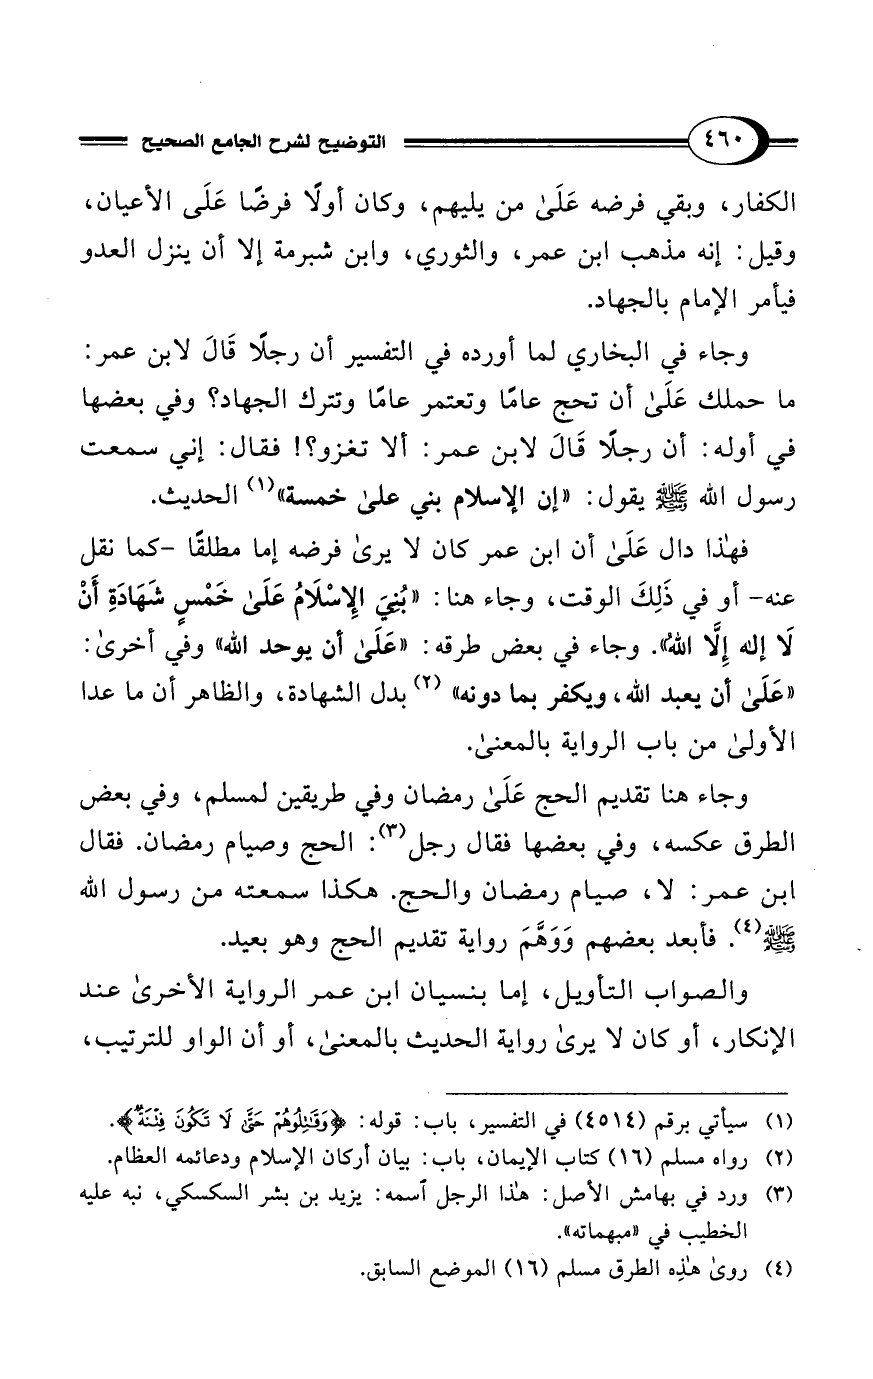 ٤٦٠ التوضيح لشرح الجامع الصحيح
الكفار، وبقي فرضه عَلَىٰ من يليهم، وكان أولًا فرضًا عَلَى الأعيان،
وقيل: إنه مذهب ابن عمر، والثوري، وابن شبرمة إلا أن ينزل العدو
فيأمر الإمام بالجهاد.
وجاء في البخاري لما أورده في التفسير أن رجلًا قَالَ لابن عمر:
ما حملك عَلَىٰ أن تحج عامًا وتعتمر عامًا وتترك الجهاد؟ وفي بعضها
في أوله: أن رجلًا قَالَ لابن عمر: ألا تغزو؟! فقال: إني سمعت
رسول الله ﷺ يقول: «إن الإسلام بني علىٰ خمسة»(١) الحديث.
فهٰذا دال عَلَىٰ أن ابن عمر كان لا يرىٰ فرضه إما مطلقًا -كما نقل
عنه- أو في ذَلِكَ الوقت، وجاء هنا: «بُنِيَ الإِسْلَامُ عَلَىٰ خَمْسٍ شَهَادَةِ أَنْ
لَا إله إِلَّا اللهُ». وجاء في بعض طرقه: «عَلَىٰ أن يوحد الله» وفي أخرىٰ:
«عَلَىٰ أن يعبد الله، ويكفر بما دونه» (٢) بدل الشهادة، والظاهر أن ما عدا
الأولىٰ من باب الرواية بالمعنىٰ.
وجاء هنا تقديم الحج عَلَىٰ رمضان وفي طريقين لمسلم، وفي بعض
الطرق عكسه، وفي بعضها فقال رجل(٣): الحج وصيام رمضان. فقال
ابن عمر: لا، صيام رمضان والحج. هكذا سمعته من رسول الله
ﷺ(٤). فأبعد بعضهم وَوَهَّمَ رواية تقديم الحج وهو بعيد.
والصواب التأويل، إما بنسيان ابن عمر الرواية الأخرىٰ عند
الإنكار، أو كان لا يرىٰ رواية الحديث بالمعنىٰ، أو أن الواو للترتيب،
(١) سيأتي برقم (٤٥١٤) في التفسير، باب: قوله: ﴿وَقَاتِلُوهُمْ حَتَّىٰ لَا تَكُونَ فِتْنَةٌ﴾.
(٢) رواه مسلم (١٦) كتاب الإيمان، باب: بيان أركان الإسلام ودعائمه العظام.
(٣) ورد في بهامش الأصل: هٰذا الرجل ٱسمه: يزيد بن بشر السكسكي، نبه عليه
الخطيب في «مبهماته».
(٤) روىٰ هٰذِه الطرق مسلم (١٦) الموضع السابق.